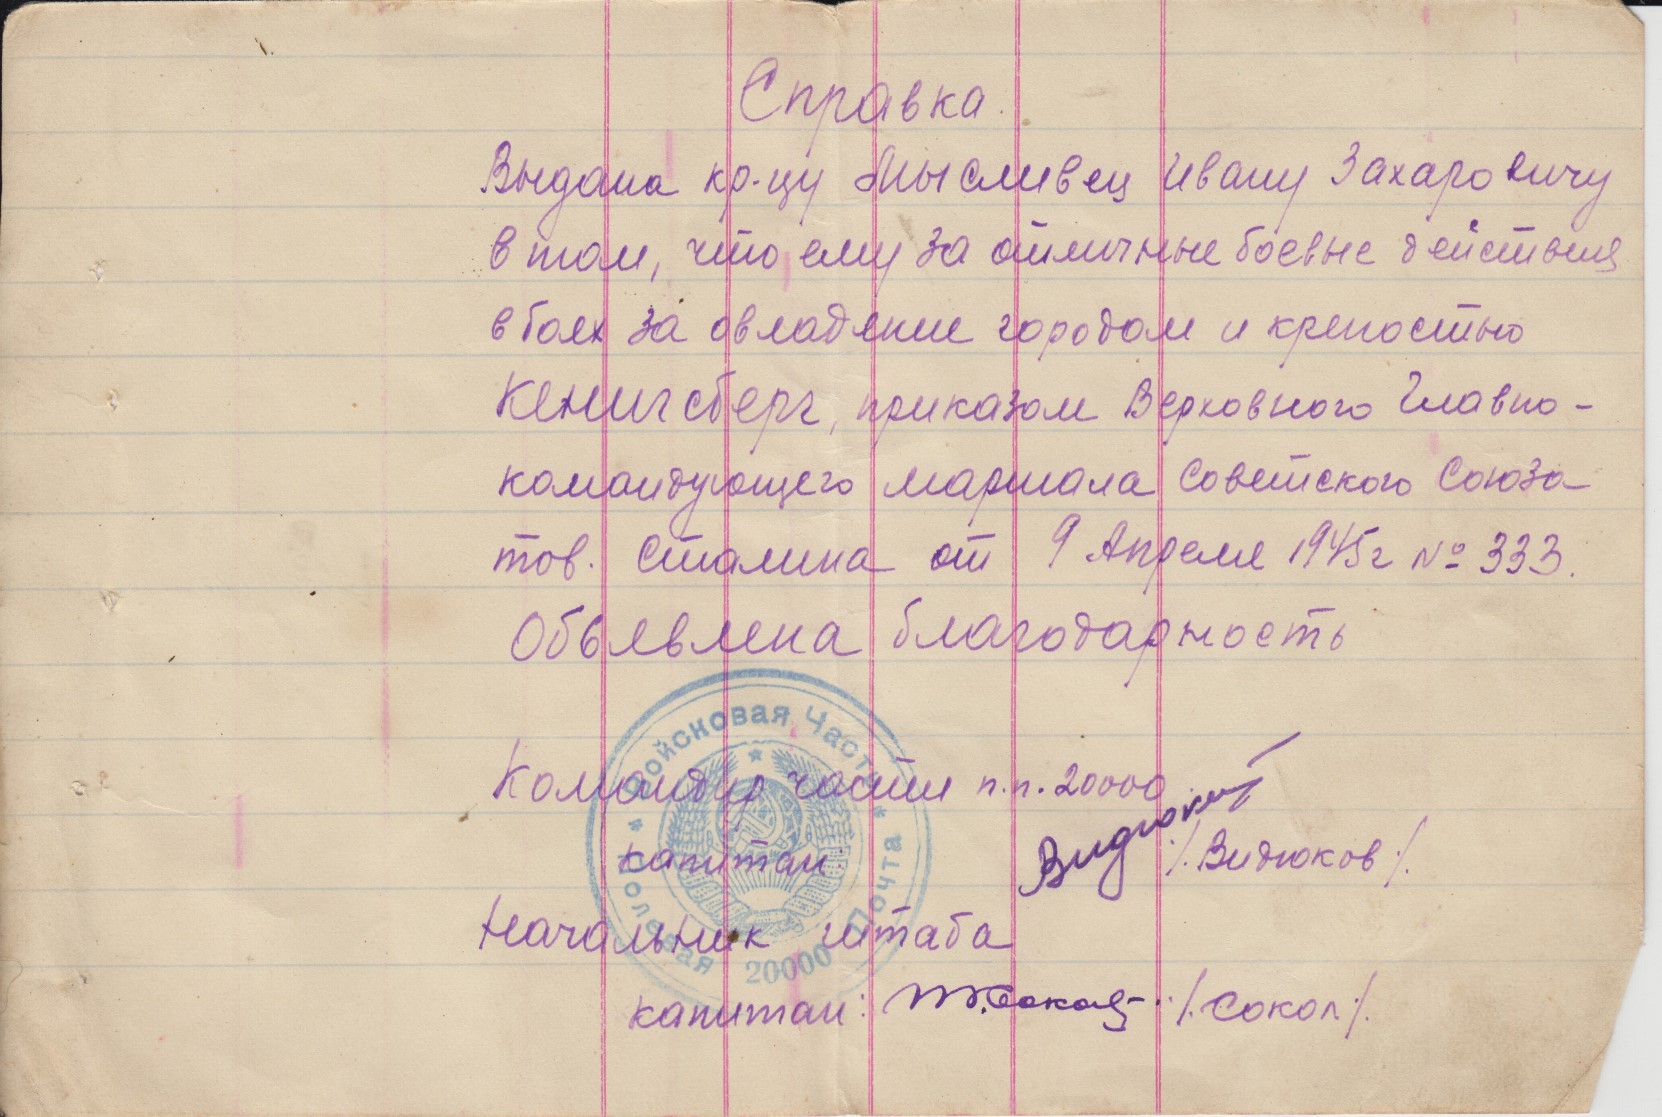 Справка.
Выдана кр-цу Мысливец Ивану Захаровичу
в том, что ему за отличные боевые действия
в боях за овладение городом и крепостью
Кенигсберг, приказом Верховного Главно-
командующего маршала Советского Союза
тов. Сталина от 9 Апреля 1945г № 333.
Объявлена благодарность
Командир части п.п. 20000
капитан: Видюков /Видюков/.
Начальник штаба
капитан: /Сокол/.
* Войсковая Часть * Полевая Почта 20000